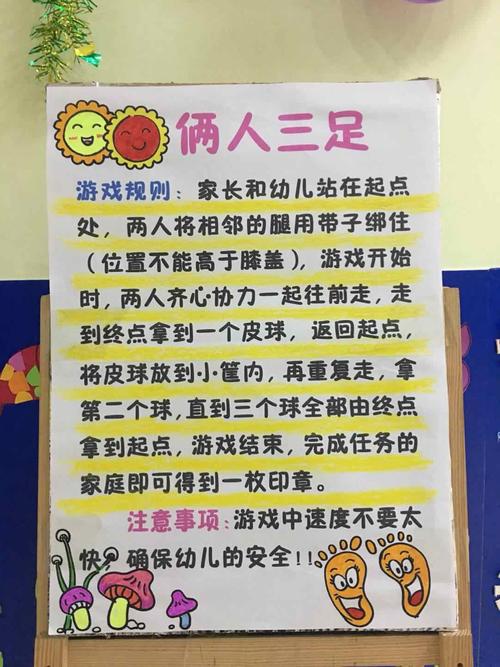 俩人三足
游戏规则：家长和幼儿站在起点
处，两人将相邻的腿用带子绑住
（位置不能高于膝盖），游戏开始
时，两人齐心协力一起往前走，走
到终点拿到一个皮球，返回起点，
将皮球放到小筐内，再重复走，拿
第二个球，直到三个球全部由终点
拿到起点，游戏结束，完成任务的
家庭即可得到一枚印章。
注意事项：游戏中速度不要太
快，确保幼儿的安全！！